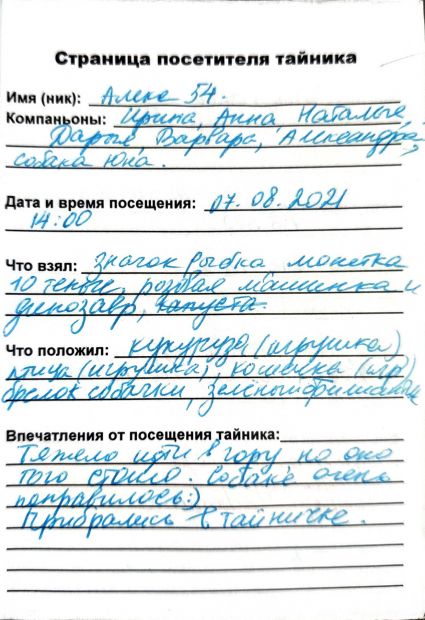 Страница посетителя тайника
Имя (ник): Алекс 54.
Компаньоны: Ирина, Анна Наталья,
Дарья, Варвара, Александра,
собака Юна.
Дата и время посещения: 07.08.2021
14:00
Что взял: значок рыбка монетка
10 теньге, розовая машинка и
динозавр, капуста.
Что положил: кукуруза (игрушка)
птица (игрушка), кошечка (игр)
брелок собачки, зелёный
Впечатления от посещения тайника:
Тяжело идти в гору но оно
того стоило. Собаке очень
понравилось:)
Прибрались в тайничке.